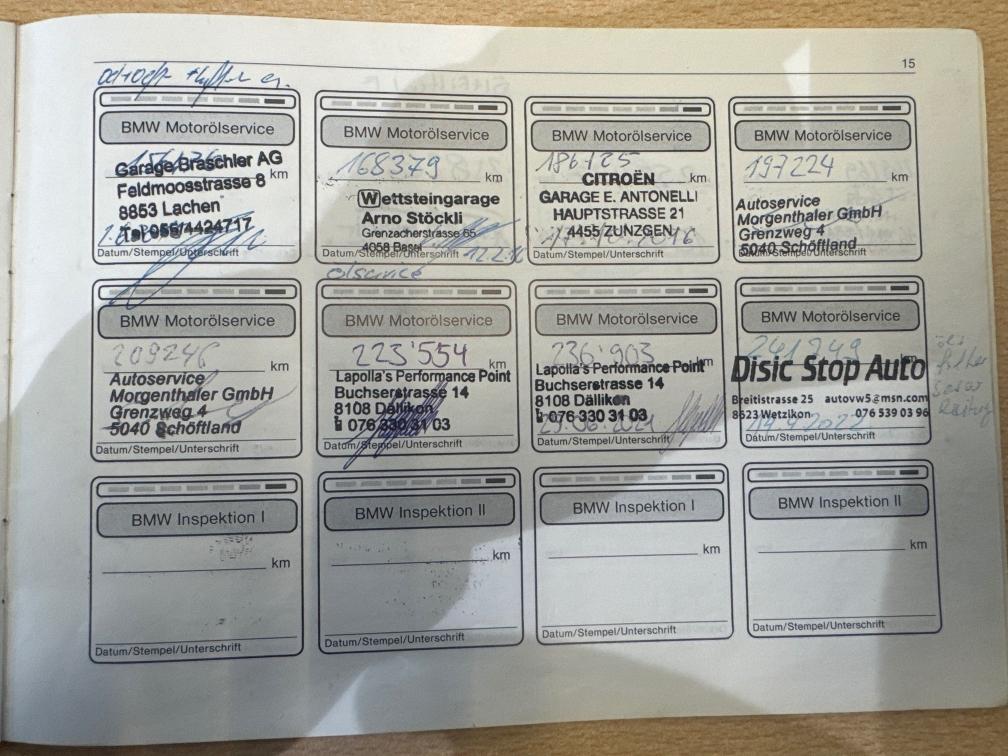 15
BMW Motorölservice
km
Garage Braschler AG
Feldmoosstrasse 8
8853 Lachen
Tel 055/4424717
Datum/Stempel/Unterschrift
BMW Motorölservice
168379 km
Wettsteingarage
Arno Stöckli
Grenzacherstrasse 65
4058 Basel
Datum/Stempel/Unterschrift
Ölservice
BMW Motorölservice
186125 km
CITROËN
GARAGE E. ANTONELLI
HAUPTSTRASSE 21
4455 ZUNZGEN
Datum/Stempel/Unterschrift
BMW Motorölservice
197224 km
Autoservice
Morgenthaler GmbH
Grenzweg 4
5040 Schöftland
Datum/Stempel/Unterschrift
BMW Motorölservice
209246 km
Autoservice
Morgenthaler GmbH
Grenzweg 4
5040 Schöftland
Datum/Stempel/Unterschrift
BMW Motorölservice
223'554 km
Lapolla's Performance Point
Buchserstrasse 14
8108 Dällikon
076 330 31 03
Datum/Stempel/Unterschrift
BMW Motorölservice
236'903 km
Lapolla's Performance Point
Buchserstrasse 14
8108 Dällikon
076 330 31 03
29.06.2021
Datum/Stempel/Unterschrift
BMW Motorölservice
241349 km
Disic Stop Auto
Breitistrasse 25 autovw5@msn.com
8623 Wetzikon 076 539 03 96
14.9.2022
Datum/Stempel/Unterschrift
BMW Inspektion I
km
Datum/Stempel/Unterschrift
BMW Inspektion II
km
Datum/Stempel/Unterschrift
BMW Inspektion I
km
Datum/Stempel/Unterschrift
BMW Inspektion II
km
Datum/Stempel/Unterschrift